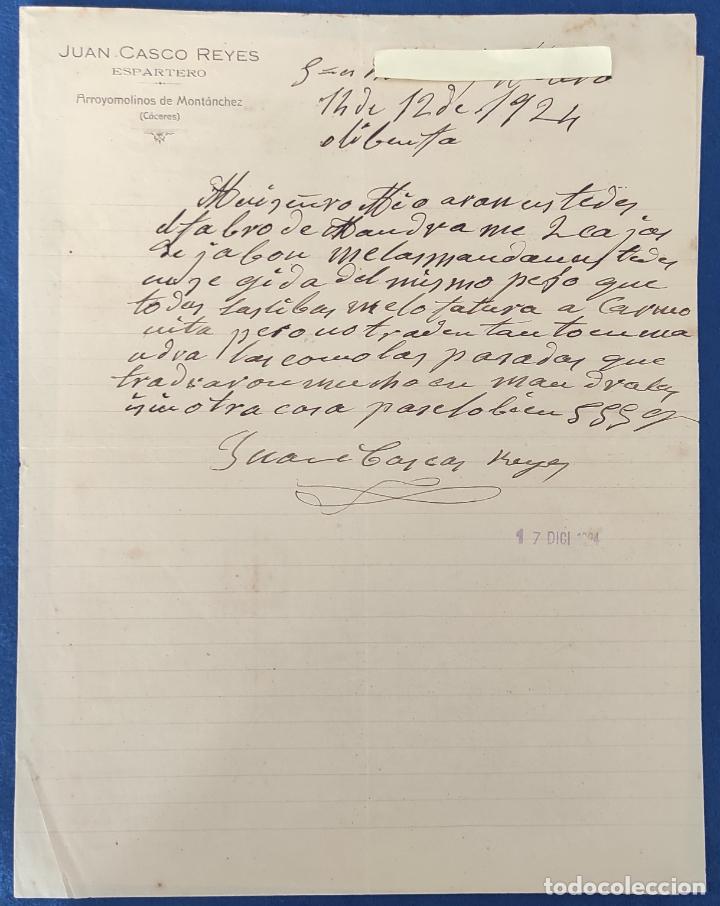 JUAN CASCO REYES
ESPARTERO
Arroyomolinos de Montánchez
(Cáceres)
14 de 12 de 1924
olibenta
Mui señro Mio aran ustedes
el fabro de Mandrame 2 cajas
de jabon melas mandan ustedes
en se gida del mismo pero que
todas las tibas melo fatura a Carmo
nita pero no traden tanto en ma
ndra las como las pasadas que
tradraron mucho en mandralas
i sin otra cosa paselo bien SSS q
Juan Cascos Reyes
17 DICI 1924
todocoleccion.net